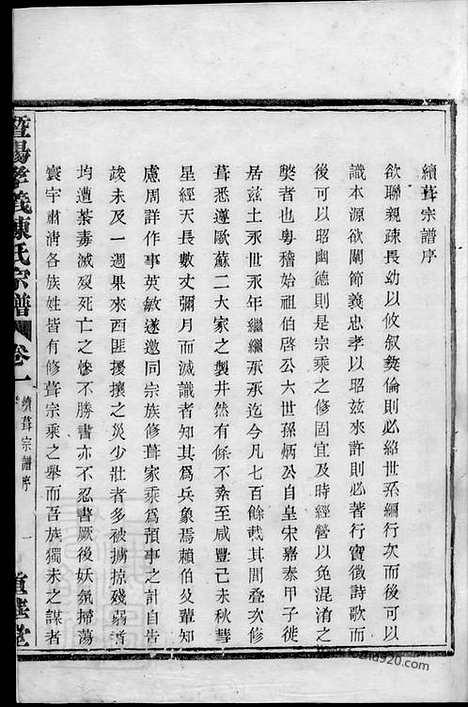 續葺宗譜序
欲聯親疎畏幼以攸叙彝倫則必紹世系纘行次而後可以
識本源欲關節義忠孝以昭茲來許則必著行實徵詩歌而
後可以昭幽德則是宗乘之修固宜及時經營以免混淆之
獘者也粵稽始祖伯啓公六世孫炳公自皇宋嘉泰甲子徙
居茲土永世永年繼繼承承迄今凡七百餘載其間叠次修
葺悉遵歐蘇二大家之製井然有條不紊至咸豐己未秋彗
星經天長數丈彌月而滅識者知其爲兵象焉賴伯父輩知
慮周詳作事英敏遂邀同宗族修葺家乘爲預事之計自告
竣未及一週果來西匪擾攘之災少壯者多被擄掠殘弱者
均遭荼毒滅裂死亡之慘不勝書亦不忍書厥後妖氛掃蕩
寰宇肅清各族姓皆有修葺宗乘之舉而吾族獨未之謀者
暨陽孝義陳氏宗譜 卷一 續葺宗譜序 一